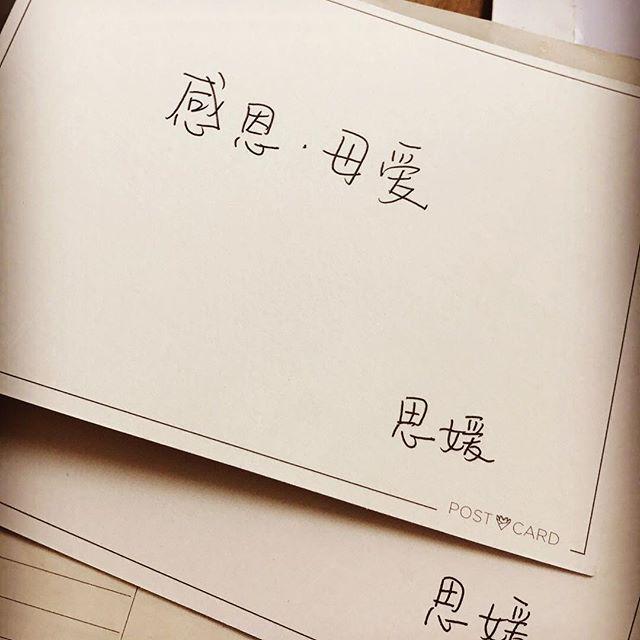 感恩·母爱
思媛
POST CARD
思媛